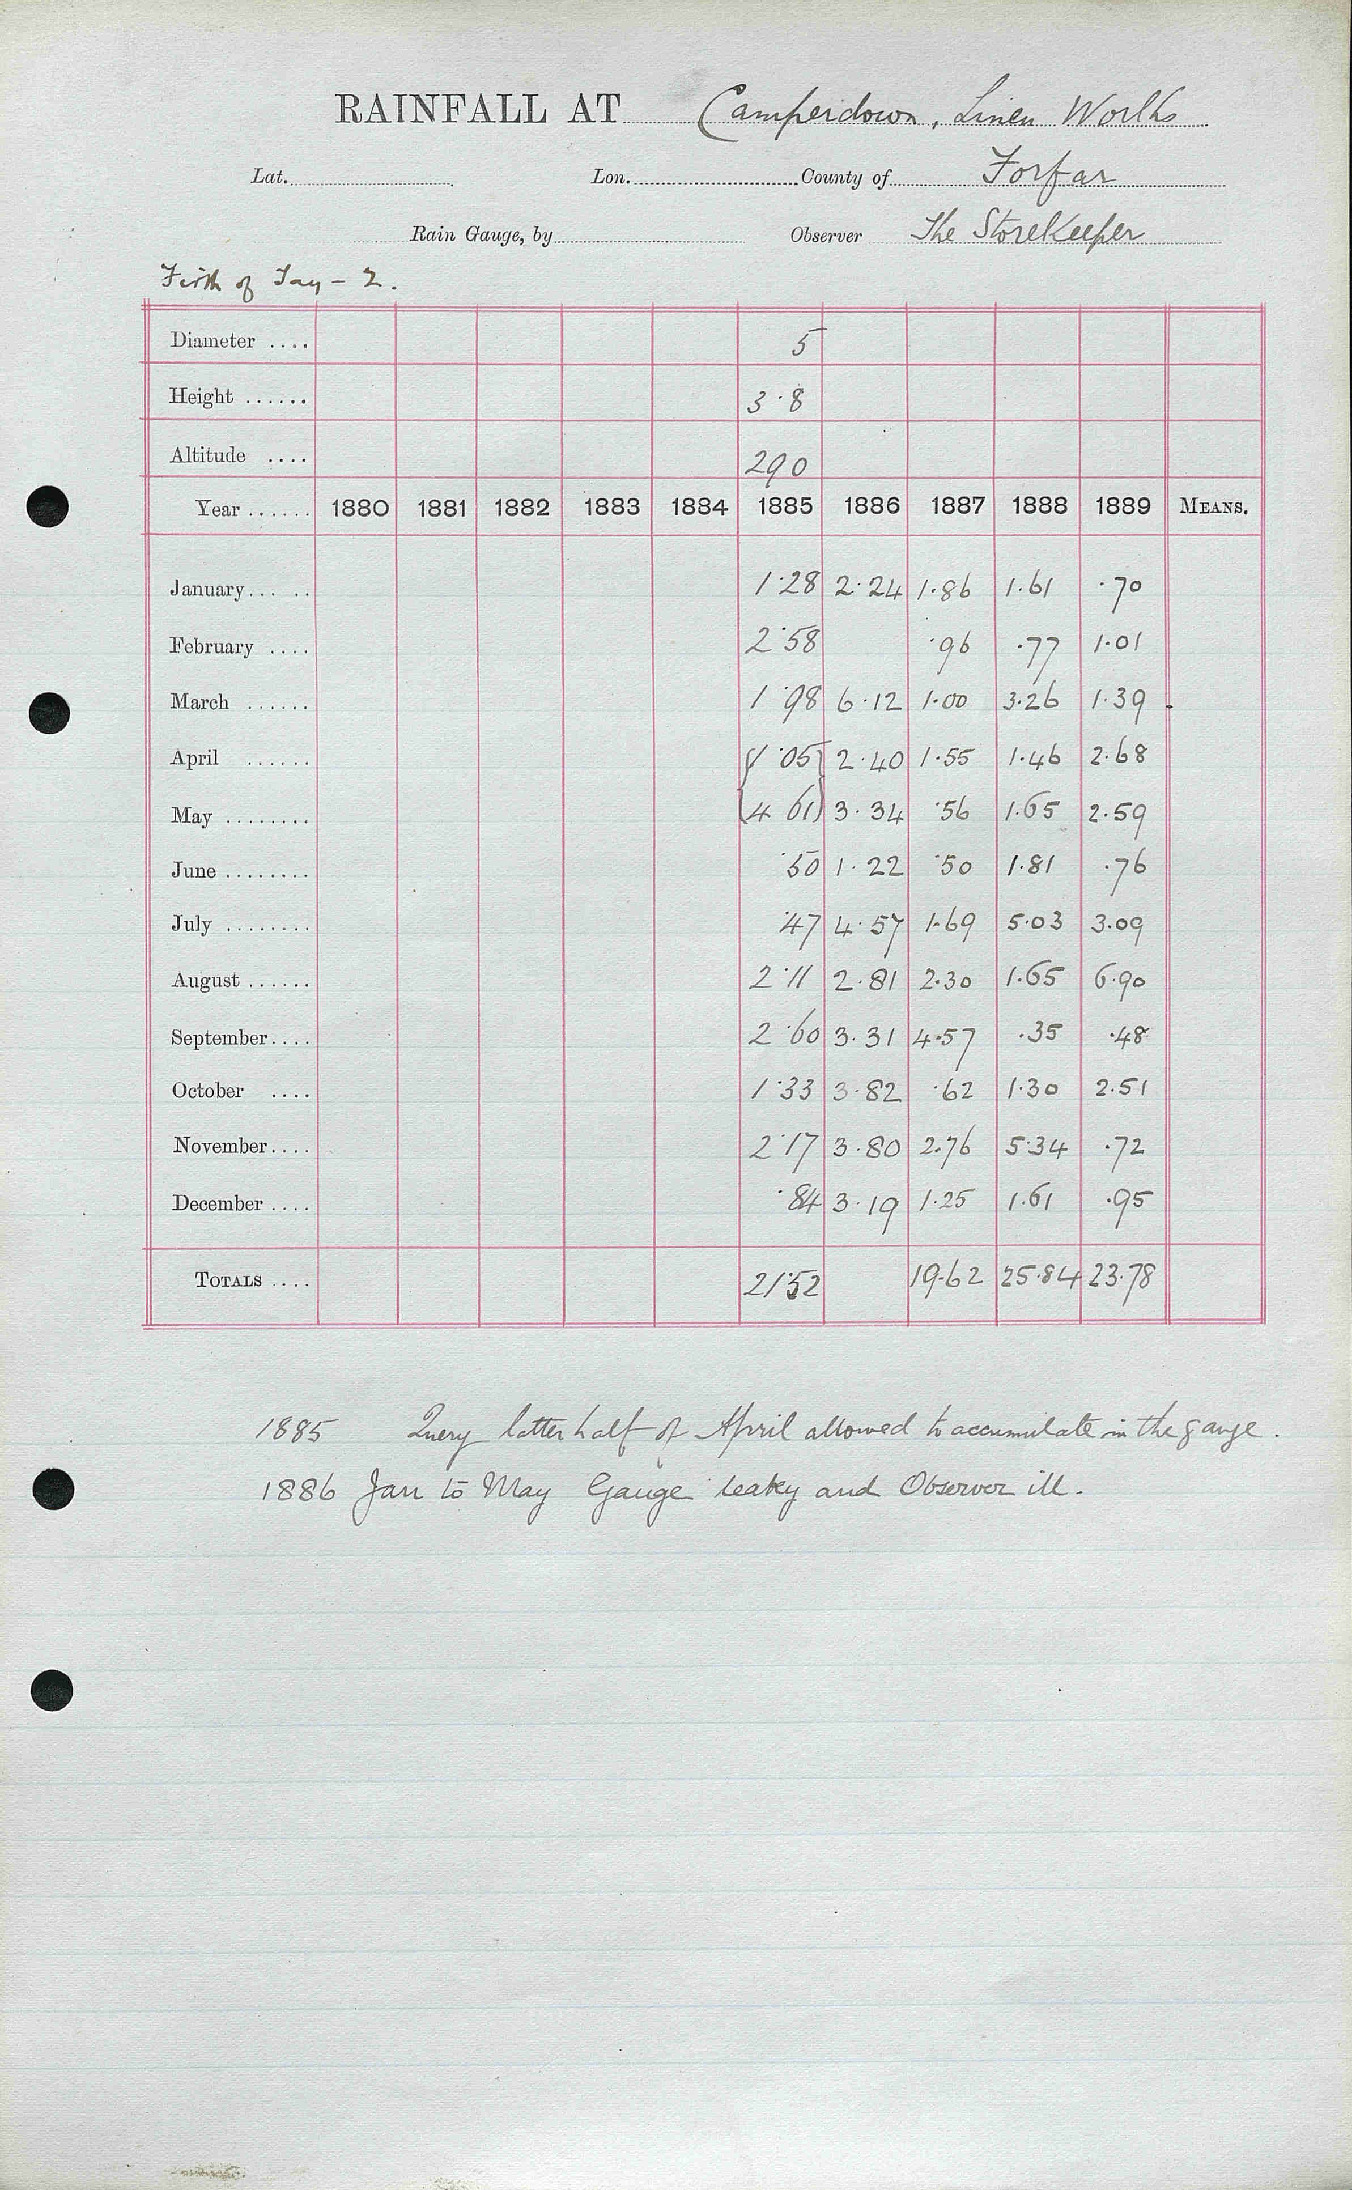 RAINFALL AT Camperdown, Linen Works
Lat. Lon. County of Forfar
Rain Gauge, by Observer The Storekeeper
Firth of Tay – 2.
Diameter .... 5
Height ...... 3·8
Altitude .... 290
Year ...... 1880 1881 1882 1883 1884 1885 1886 1887 1888 1889 MEANS.
January ..... 1·28 2·24 1·86 1·61 ·70
February .... 2·58 ·96 ·77 1·01
March ...... 1·98 6·12 1·00 3·26 1·39
April ...... {1·05} 2·40 1·55 1·46 2·68
May ........ {4 61} 3·34 ·56 1·65 2·59
June ........ ·50 1·22 ·50 1·81 ·76
July ........ ·47 4·57 1·69 5·03 3·09
August ...... 2·11 2·81 2·30 1·65 6·90
September .... 2·60 3·31 4·57 ·35 ·48
October .... 1·33 3·82 ·62 1·30 2·51
November .... 2·17 3·80 2·76 5·34 ·72
December .... ·84 3·19 1·25 1·61 ·95
TOTALS .... 21·52 19·62 25·84 23·78
1885 Query latter half of April allowed to accumulate in the gauge.
1886 Jan to May Gauge leaky and Observer ill.